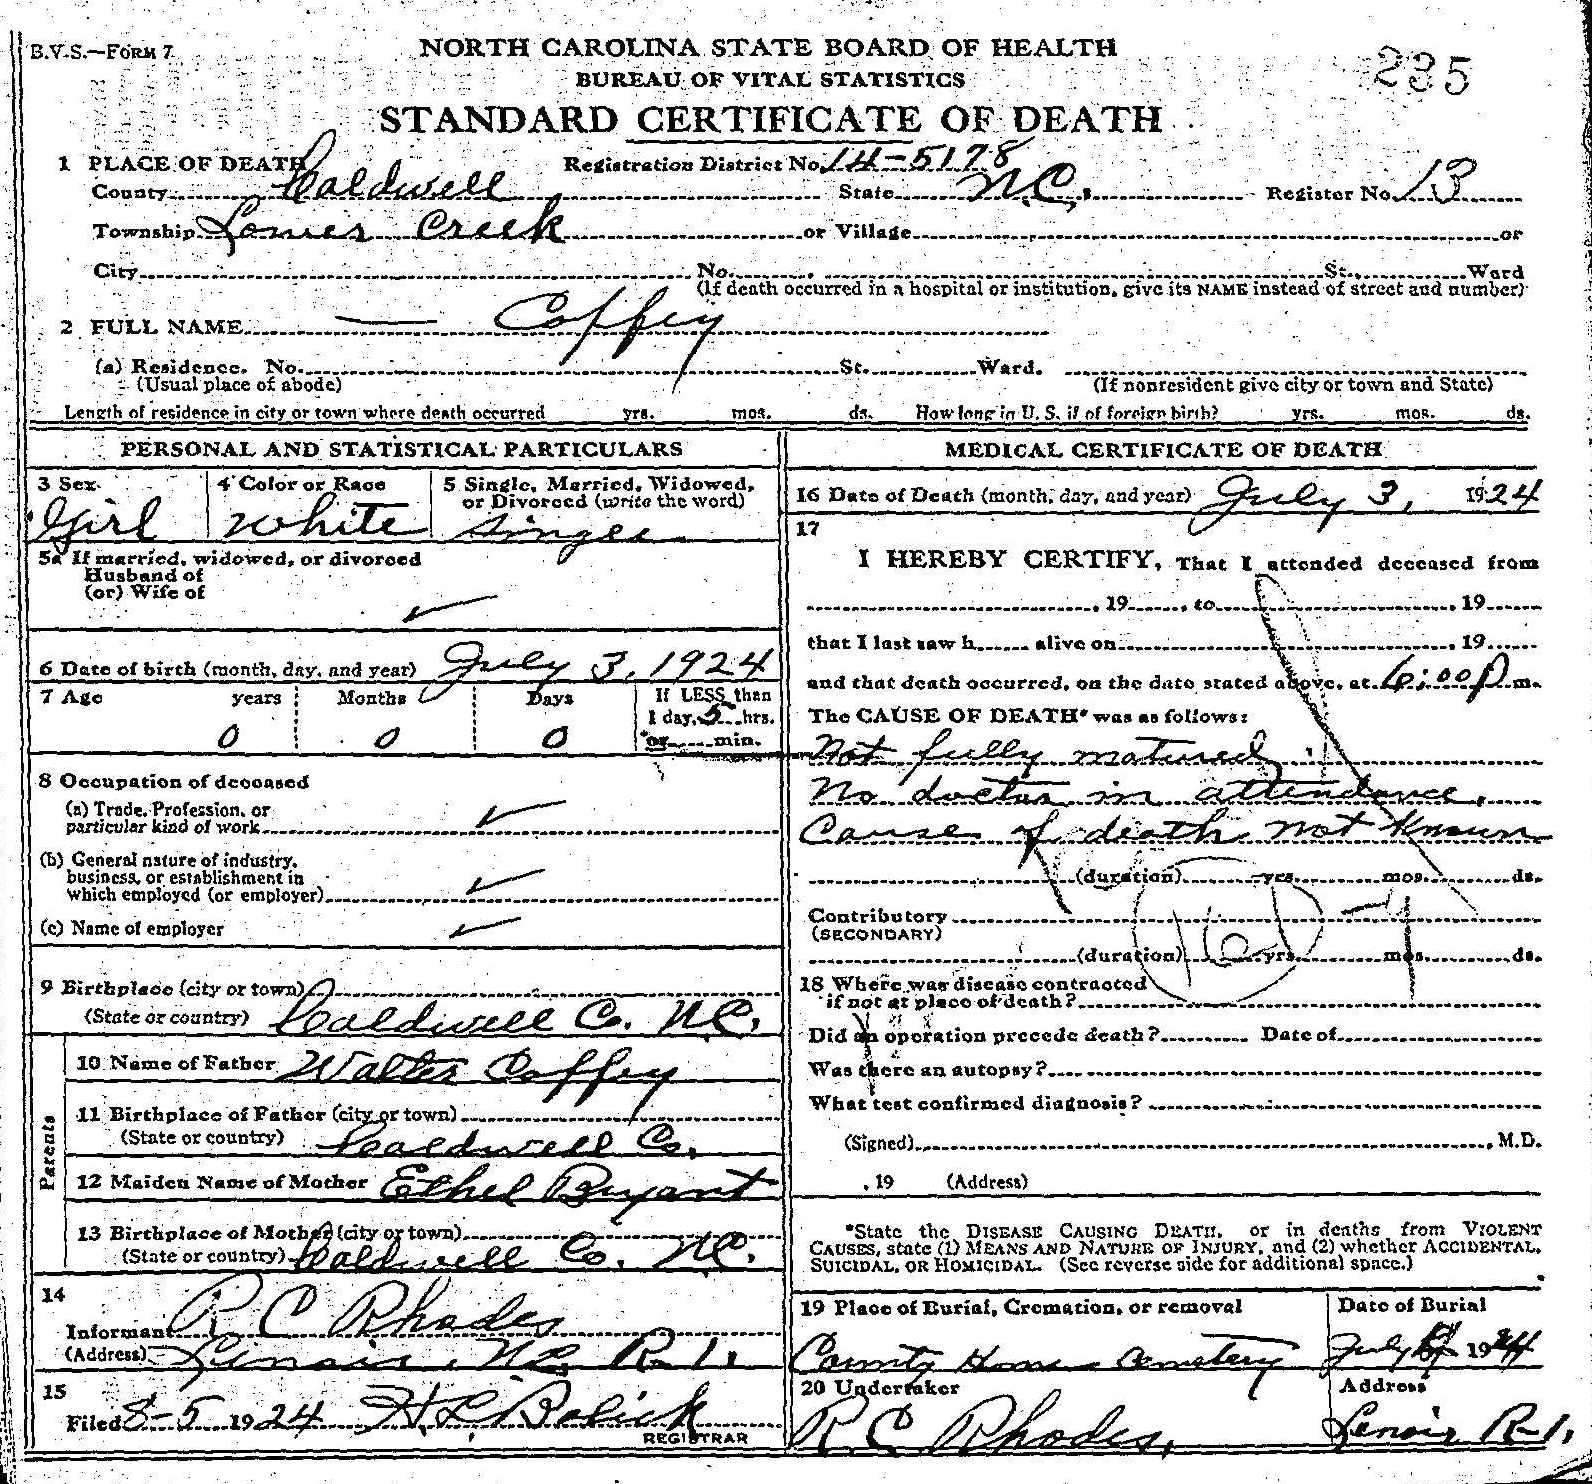 B.V.S.—FORM 7
NORTH CAROLINA STATE BOARD OF HEALTH
BUREAU OF VITAL STATISTICS
235
STANDARD CERTIFICATE OF DEATH
1 PLACE OF DEATH Registration District No. 14-5178
County Caldwell State N.C. Register No. 13
Township Lower Creek or Village or
City No. St., Ward
(If death occurred in a hospital or institution, give its NAME instead of street and number)
2 FULL NAME — Coffey
(a) Residence. No. St. Ward.
(Usual place of abode) (If nonresident give city or town and State)
Length of residence in city or town where death occurred yrs. mos. ds. How long in U. S. if of foreign birth? yrs. mos. ds.
PERSONAL AND STATISTICAL PARTICULARS
3 Sex 4 Color or Race 5 Single, Married, Widowed,
or Divorced (write the word)
Girl White Single
5a If married, widowed, or divorced
Husband of
(or) Wife of
6 Date of birth (month, day, and year) July 3, 1924
7 Age years Months Days If LESS than
1 day, 5 hrs.
0 0 0 or min.
8 Occupation of deceased
(a) Trade, Profession, or
particular kind of work
(b) General nature of industry,
business, or establishment in
which employed (or employer)
(c) Name of employer
9 Birthplace (city or town)
(State or country) Caldwell Co. N.C.
Parents
10 Name of Father Walter Coffey
11 Birthplace of Father (city or town)
(State or country) Caldwell Co.
12 Maiden Name of Mother Ethel Bryant
13 Birthplace of Mother (city or town)
(State or country) Caldwell Co. N.C.
14
Informant R C Rhodes
(Address) Lenoir, N.C. R-1.
15
Filed 8-5 1924 H L Bolick
REGISTRAR
MEDICAL CERTIFICATE OF DEATH
16 Date of Death (month, day, and year) July 3, 1924
17
I HEREBY CERTIFY, That I attended deceased from
, 19 , to , 19
that I last saw h alive on , 19
and that death occurred, on the date stated above, at 6:00 P m.
The CAUSE OF DEATH* was as follows:
Not fully matured
No doctor in attendance,
Cause of death not known
(duration) yrs. mos. ds.
Contributory
(SECONDARY)
(duration) yrs. mos. ds.
18 Where was disease contracted
if not at place of death?
Did an operation precede death? Date of
Was there an autopsy?
What test confirmed diagnosis?
(Signed) , M.D.
, 19 (Address)
*State the DISEASE CAUSING DEATH, or in deaths from VIOLENT
CAUSES, state (1) MEANS AND NATURE OF INJURY, and (2) whether ACCIDENTAL,
SUICIDAL, OR HOMICIDAL. (See reverse side for additional space.)
19 Place of Burial, Cremation, or removal Date of Burial
County Home Cemetery July 1924
20 Undertaker Address
R C Rhodes, Lenoir R-1.